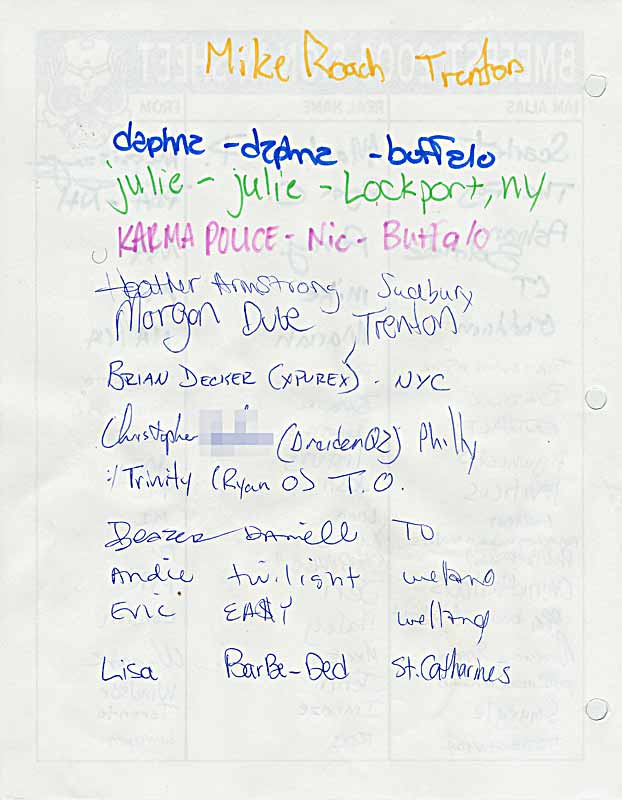 Mike Roach Trenton
daphne - daphne - buffalo
julie - julie - Lockport, NY
KARMA POLICE - Nic - Buffalo
Heather Armstrong Sudbury
Morgan Dube Trenton
BRIAN DECKER (XPUREX) - NYC
Christopher (Draiden02) Philly
:/Trinity (Ryan O) T.O.
DANIELL TO
Andie twilight welland
Eric EA$Y welland
Lisa BarBe-Ded St. Catharines